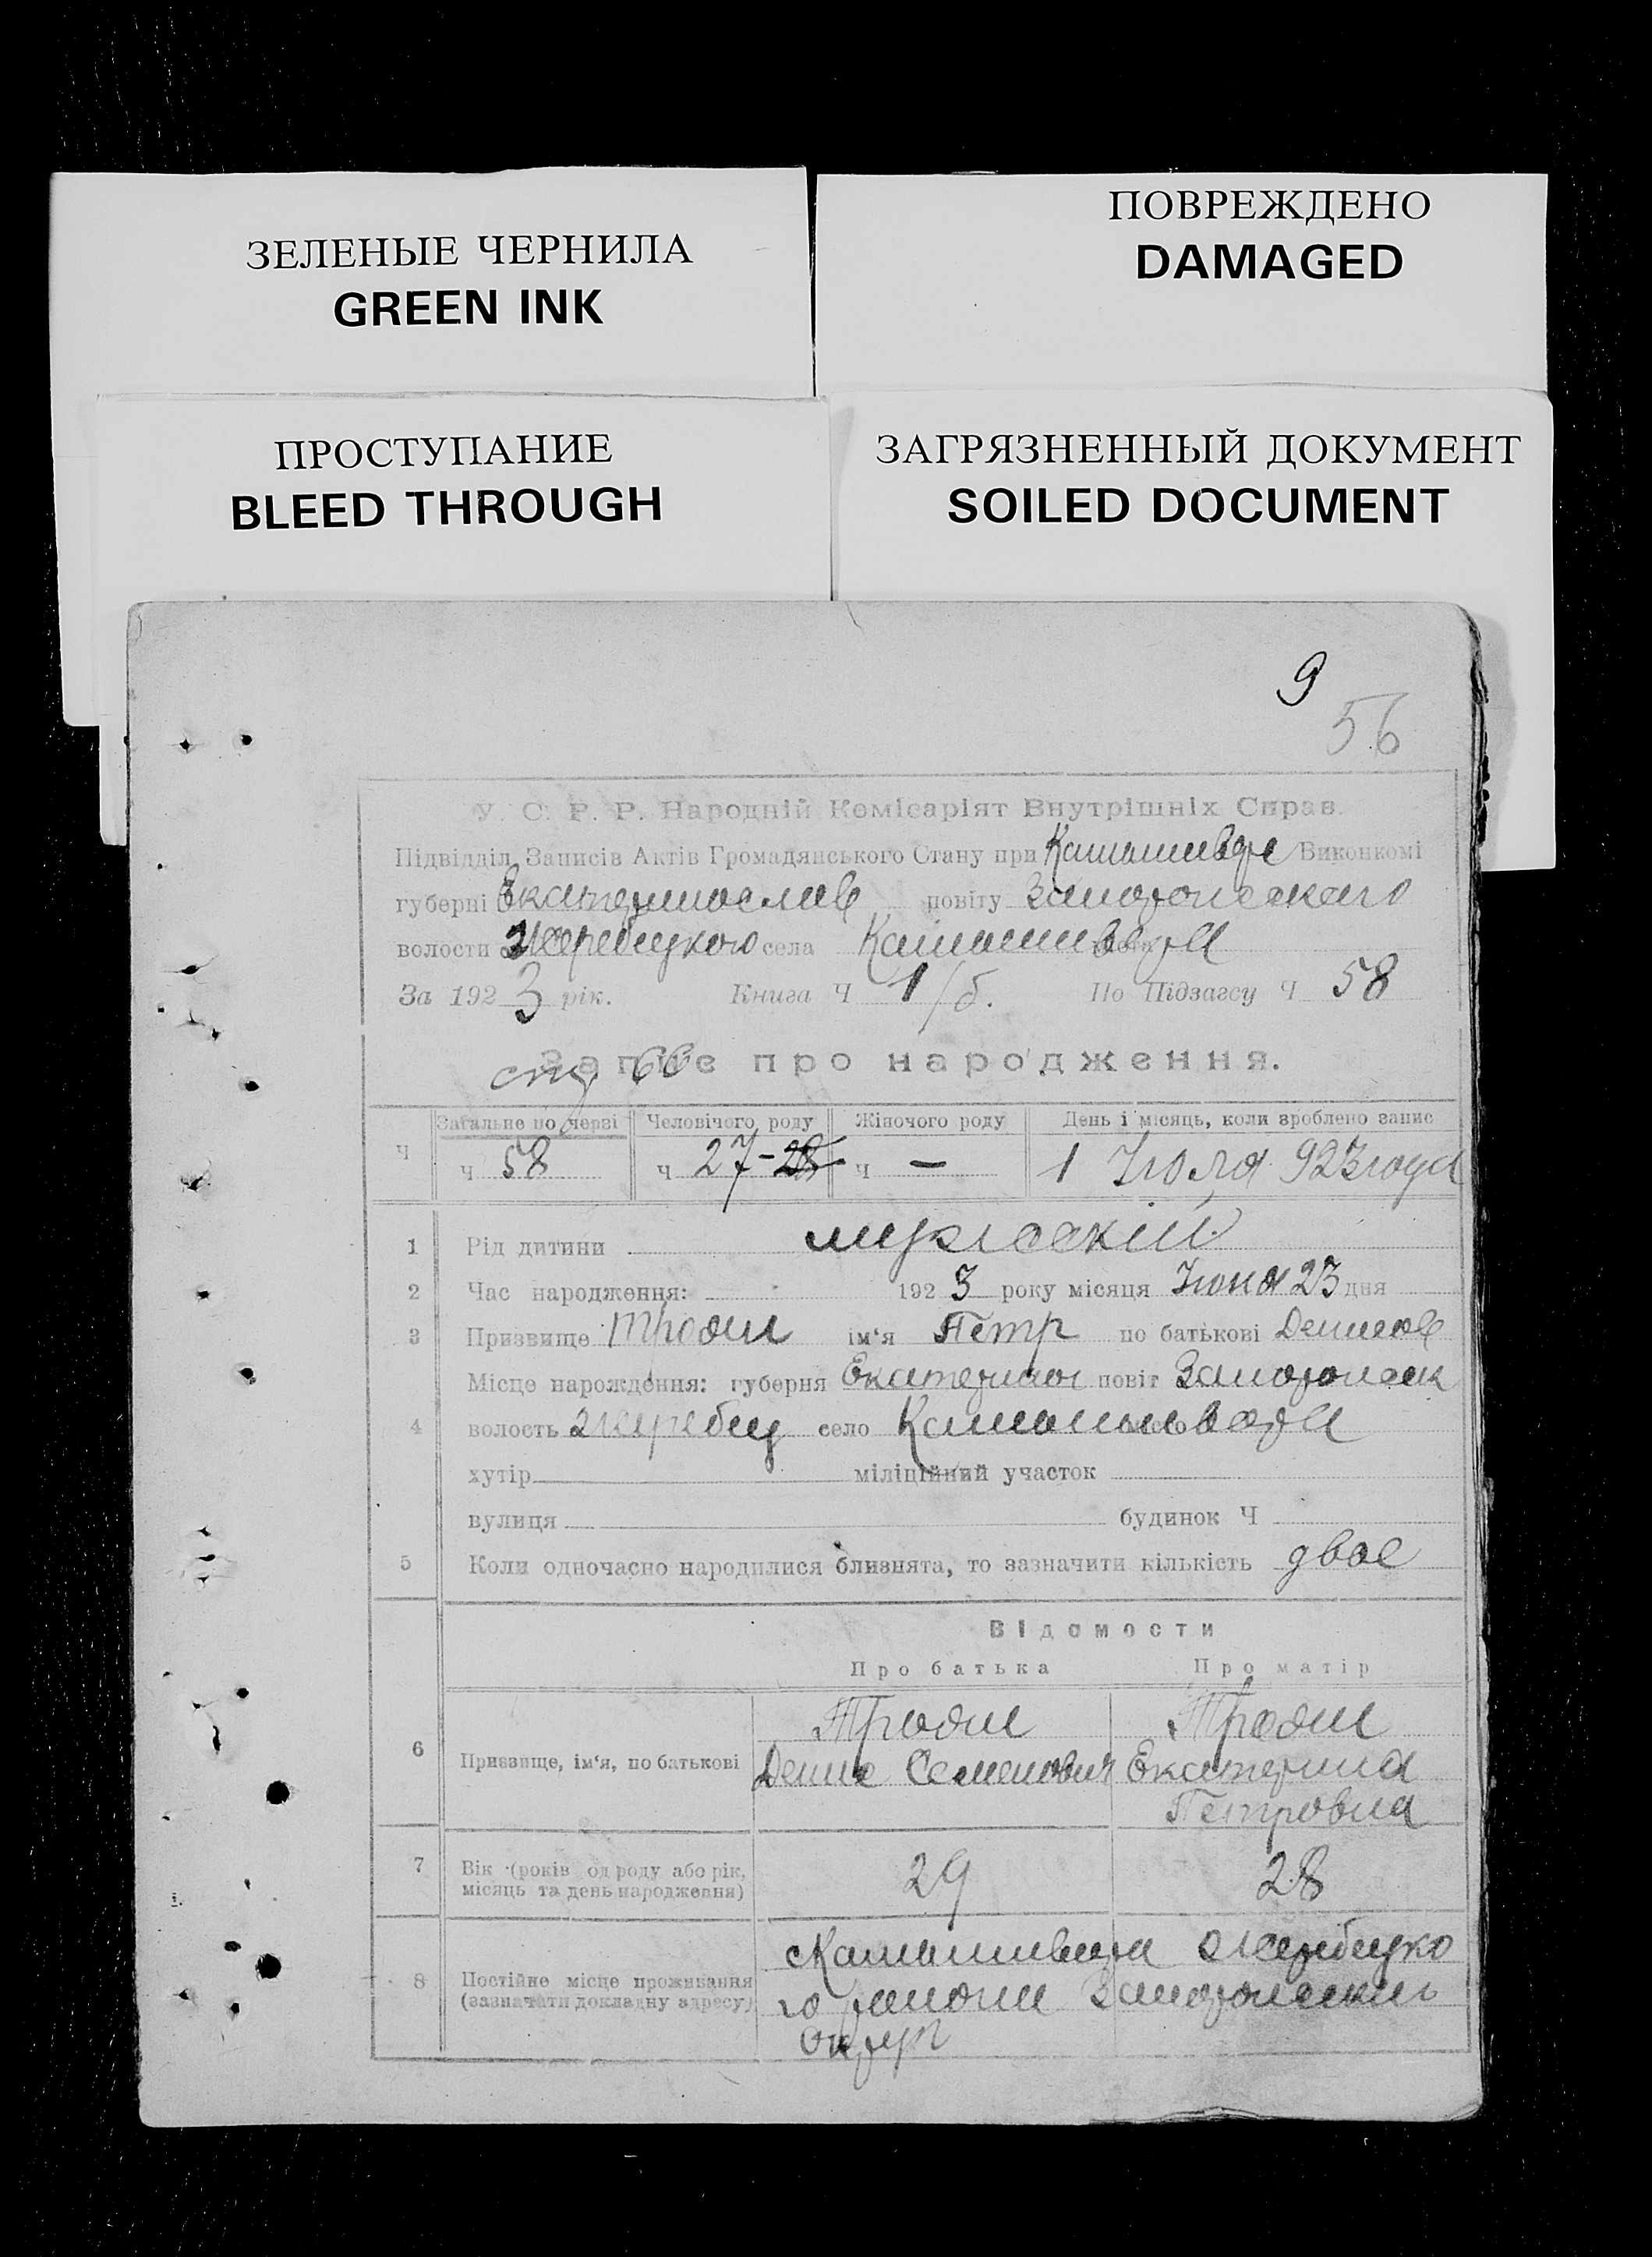 ЗЕЛЕНЫЕ ЧЕРНИЛА
GREEN INK
ПОВРЕЖДЕНО
DAMAGED
ПРОСТУПАНИЕ
BLEED THROUGH
ЗАГРЯЗНЕННЫЙ ДОКУМЕНТ
SOILED DOCUMENT
9
56
У. С. Р. Р. Народній Комісаріят Внутрішніх Справ.
Підвідділ Записів Актів Громадянського Стану при Виконкомі
губерні Екатеринослав повіту Запорожскаго
волости Жеребецкого села
За 1923 рік. Книга Ч 1/б. По Підзагсу Ч 58
Запис про народження.
Загальне по черзі Человічого роду Жіночого роду День і місяць, коли зроблено запис
Ч ч 58 ч 27-28 ч — 1 Июля 923 года
1 Рід дитини мужеский
2 Час народження: 1923 року місяця Июня 23 дня
3 Призвище ім‘я Петр по батькові Денисов
Місце народження: губерня Екатеринос повіт Запорожск
4 волость Жеребец село
хутір міліційний участок
вулиця будинок Ч
5 Коли одночасно народилися близнята, то зазначити кількість двое
Відомости
Про батька Про матір
6 Призвище, ім‘я, по батькові Денис Семенович Екатерина
Петровна
7 Вік (років од роду або рік, місяць та день народження) 29 28
8 Постійне місце проживання (зазначати докладну адресу) Жеребецко
го района Запорожский
округ